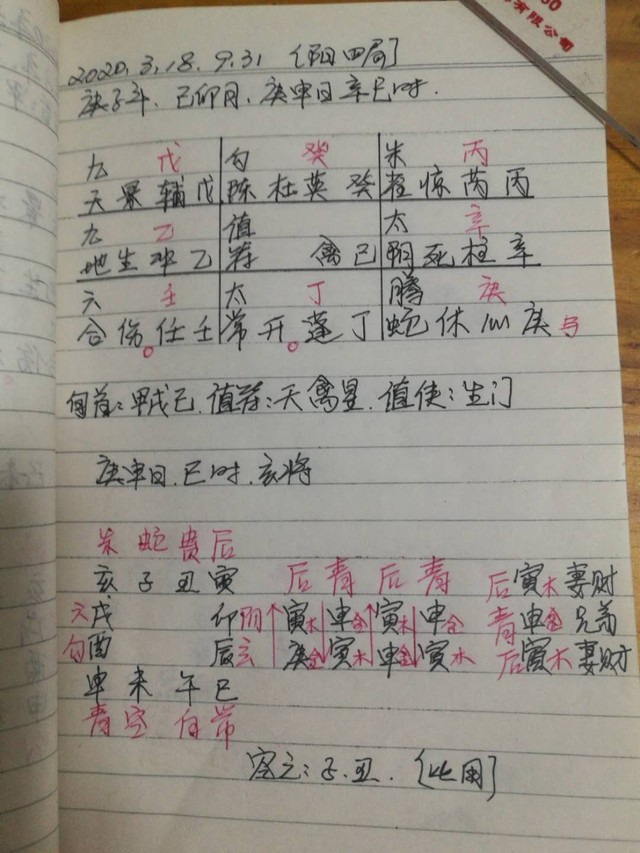 有限公司
2020.3.18.9.31 [阳四局]
庚子年、己卯月、庚申日辛巳时.
九 戊 勾 癸 朱 丙
天景辅戊 陈杜英癸 雀惊芮丙
九 乙 值 太 辛
地生冲乙 符 禽己 阴死柱辛
六 壬 太 丁 腾 庚
合伤任壬 常开蓬丁 蛇休心庚马
旬首:甲戌己.值符:天禽星.值使:生门
庚申日.巳时.亥将
朱 蛇 贵 后
亥 子 丑 寅 后 青 后 青 后寅木妻财
六戌 卯阴 寅木 申金 寅木 申金 青申金兄弟
勾酉 辰玄 庚金 寅木 申金 寅木 后寅木妻财
申 未 午 巳
青 空 白 常
空亡:子.丑. [比用]